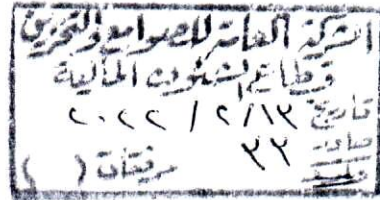 الشركة العامة للصوامع والتخزين
قطاع الشئون المالية
تاريخ ٢٠٢٢/٢/١٣
صادر ٣٢
مرفقات ( )